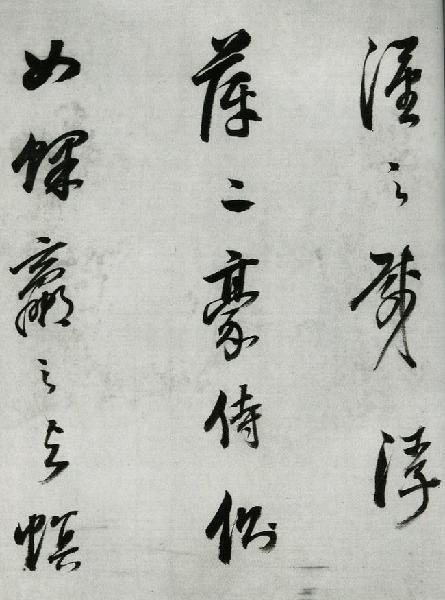 漢之載浮
萍二豪侍側
如蜾蠃之與螟